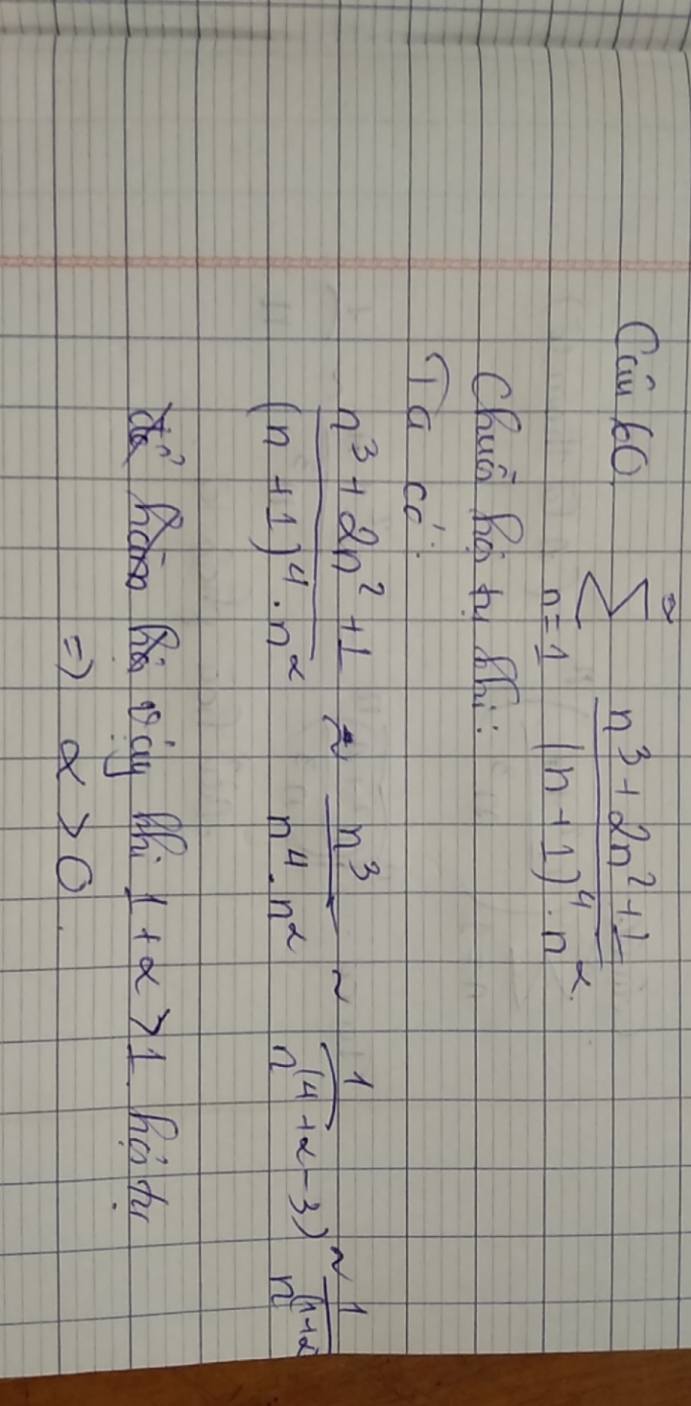 Câu 60 ∑ₙ₌₁^∞ (n³ + 2n² + 1) / ((n + 1)⁴ . n^α)
Chuỗi hội tụ khi:
Ta có:
(n³ + 2n² + 1) / ((n + 1)⁴ . n^α) ~ n³ / (n⁴ . n^α) ~ 1 / n^(4+α-3) ~ 1 / n^(1+α)
vậy khi 1 + α > 1 hội tụ
=> α > 0.